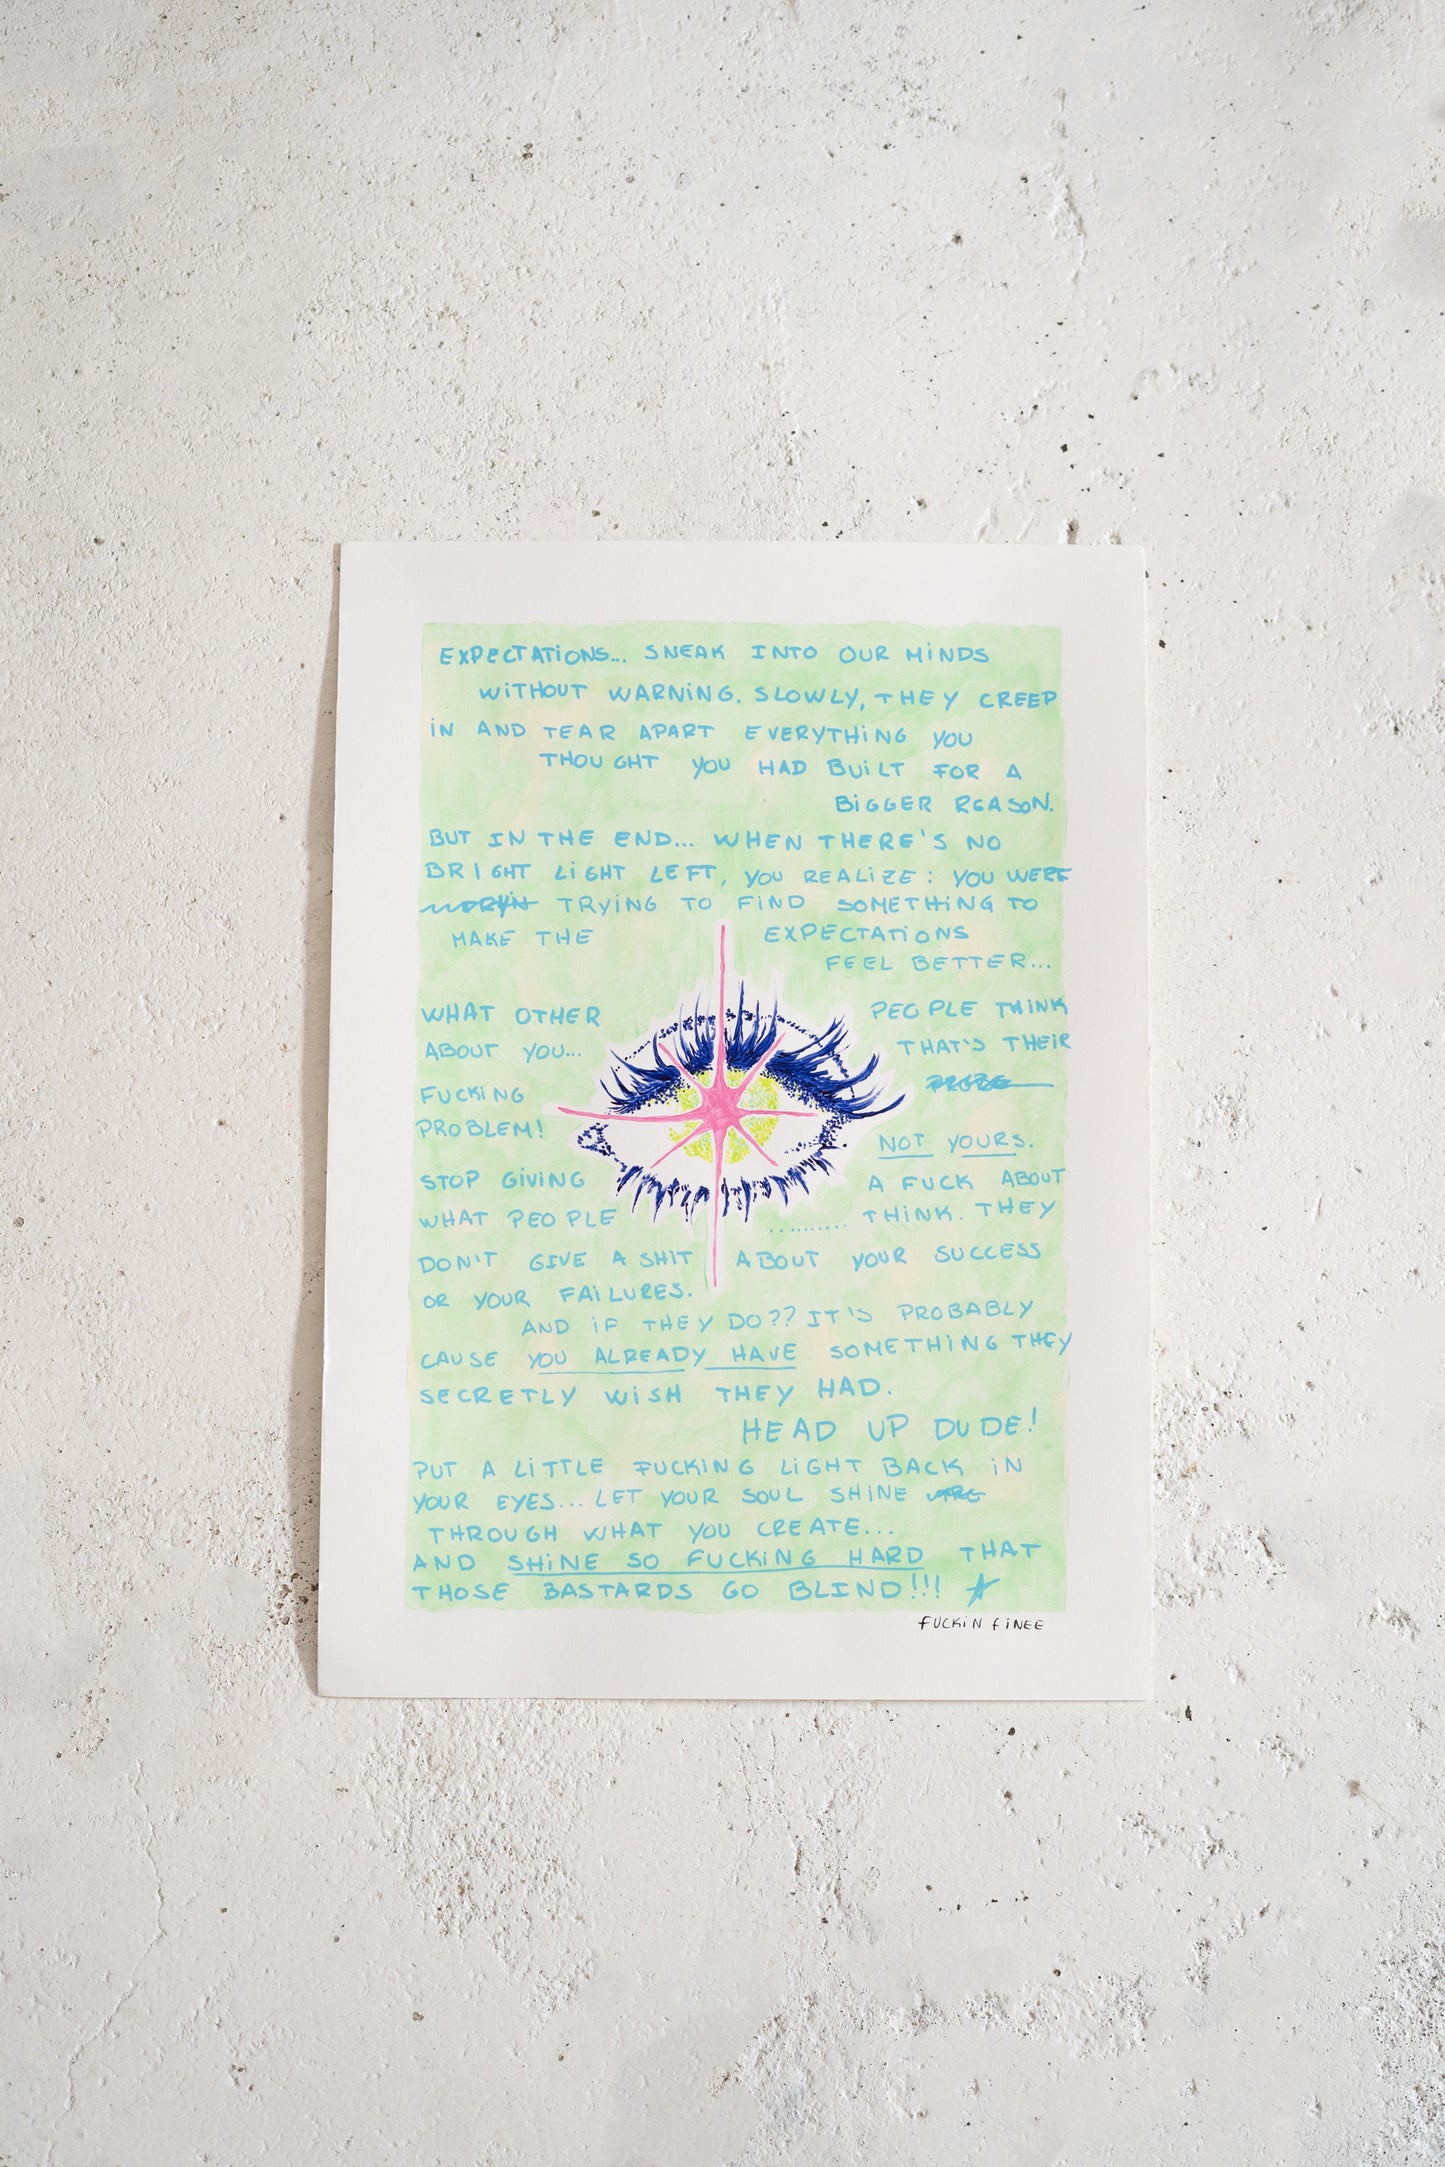 EXPECTATIONS... SNEAK INTO OUR MINDS
WITHOUT WARNING. SLOWLY, THEY CREEP
IN AND TEAR APART EVERYTHING YOU
THOUGHT YOU HAD BUILT FOR A
BIGGER REASON.
BUT IN THE END... WHEN THERE'S NO
BRIGHT LIGHT LEFT, YOU REALIZE: YOU WERE
TRYING TO FIND SOMETHING TO
MAKE THE EXPECTATIONS
FEEL BETTER...
WHAT OTHER PEOPLE THINK
ABOUT YOU... THAT'S THEIR
FUCKING
PROBLEM! NOT YOURS.
STOP GIVING A FUCK ABOUT
WHAT PEOPLE ......... THINK. THEY
DON'T GIVE A SHIT ABOUT YOUR SUCCESS
OR YOUR FAILURES.
AND IF THEY DO?? IT'S PROBABLY
CAUSE YOU ALREADY HAVE SOMETHING THEY
SECRETLY WISH THEY HAD.
HEAD UP DUDE!
PUT A LITTLE FUCKING LIGHT BACK IN
YOUR EYES... LET YOUR SOUL SHINE
THROUGH WHAT YOU CREATE...
AND SHINE SO FUCKING HARD THAT
THOSE BASTARDS GO BLIND!!!
FUCKIN FINEE